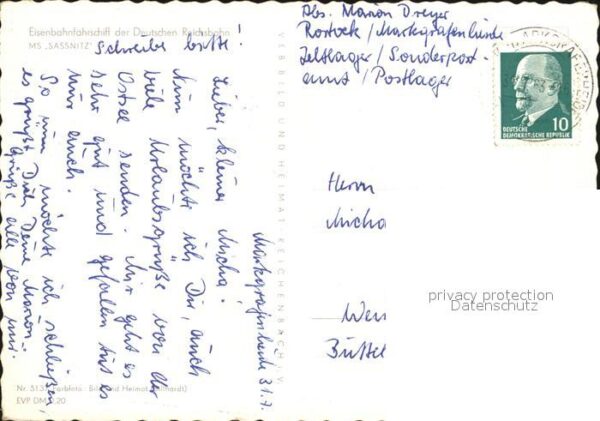 Eisenbahnfährschiff der Deutschen Reichsbahn
MS „SASSNITZ"
Schreibe bitte!
Markgrafenheide 31.7.
Lieber, kleiner Micha!
Nun möchte ich Dir, auch
viele Urlaubsgrüße von der
Ostsee senden. Mir geht es
sehr gut und gefallen tut es
mir auch.
So nun möchte ich schließen,
es grüßt Dich Deine Marion.
Grüße alle von mir
Nr. 513 Farbfoto: Bild und Heimat
EVP DM 0.20
VEB BILD UND HEIMAT · REICHENBACH I. V.
Abs. Marion Dreyer
Rostock / Markgrafenheide
Zeltlager / Sonderpost-
amt / Postlager
MARKGRAFENHEIDE
10
DEUTSCHE
DEMOKRATISCHE REPUBLIK
Herrn
Micha
Wen
Büttel
privacy protection
Datenschutz